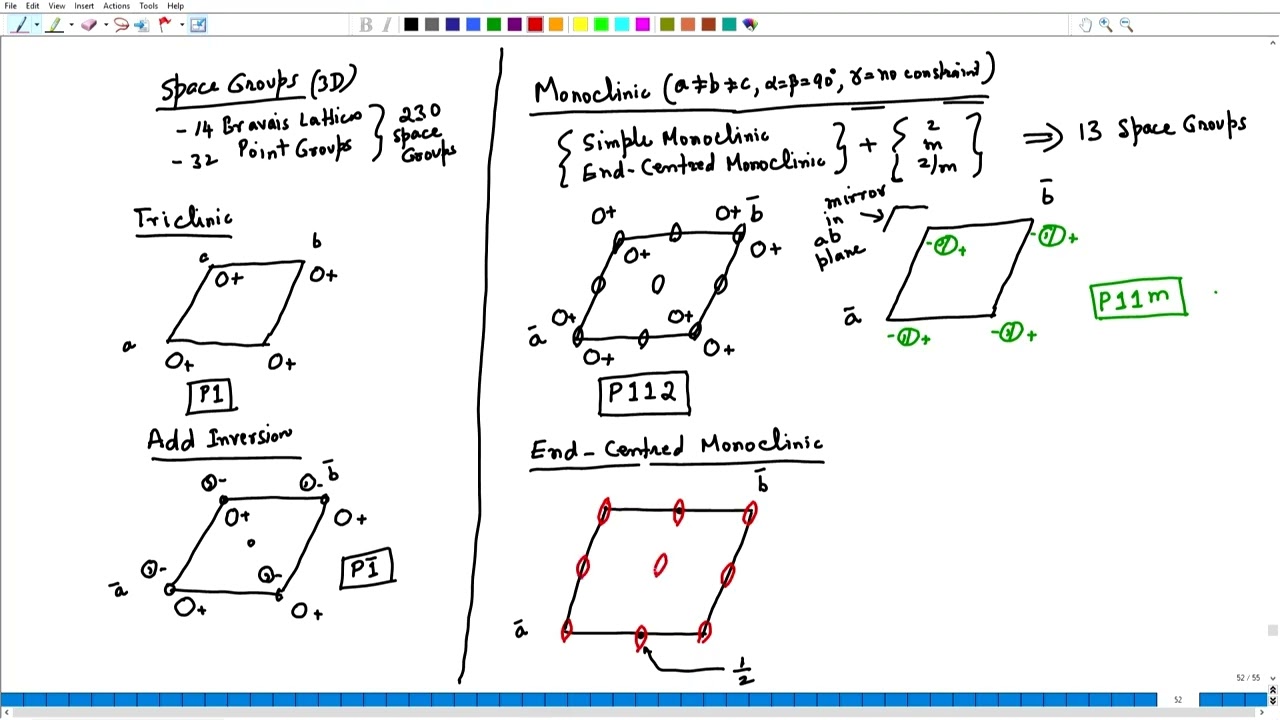 File Edit View Insert Actions Tools Help
B I
Space Groups (3D)
- 14 Bravais Lattices
- 32 Point Groups
230 Space Groups
Triclinic
a b
O+ O+
a
O+ O+
P1
Add Inversion
b̄
O, - O, -
O+ O+
O, - O, -
ā
O+ O+
P1̄
Monoclinic (a≠b≠c, α=β=90°, γ=no constraint)
Simple Monoclinic
End-Centred Monoclinic
+
2
m
2/m
⇒ 13 Space Groups
O+ O+ b̄
O+ O+
O+ O+
ā
O+ O+
P112
mirror
in
ab
plane
b̄
- + - +
ā
- + - +
P11m
End-Centred Monoclinic
b̄
ā
1/2
52 / 55
52